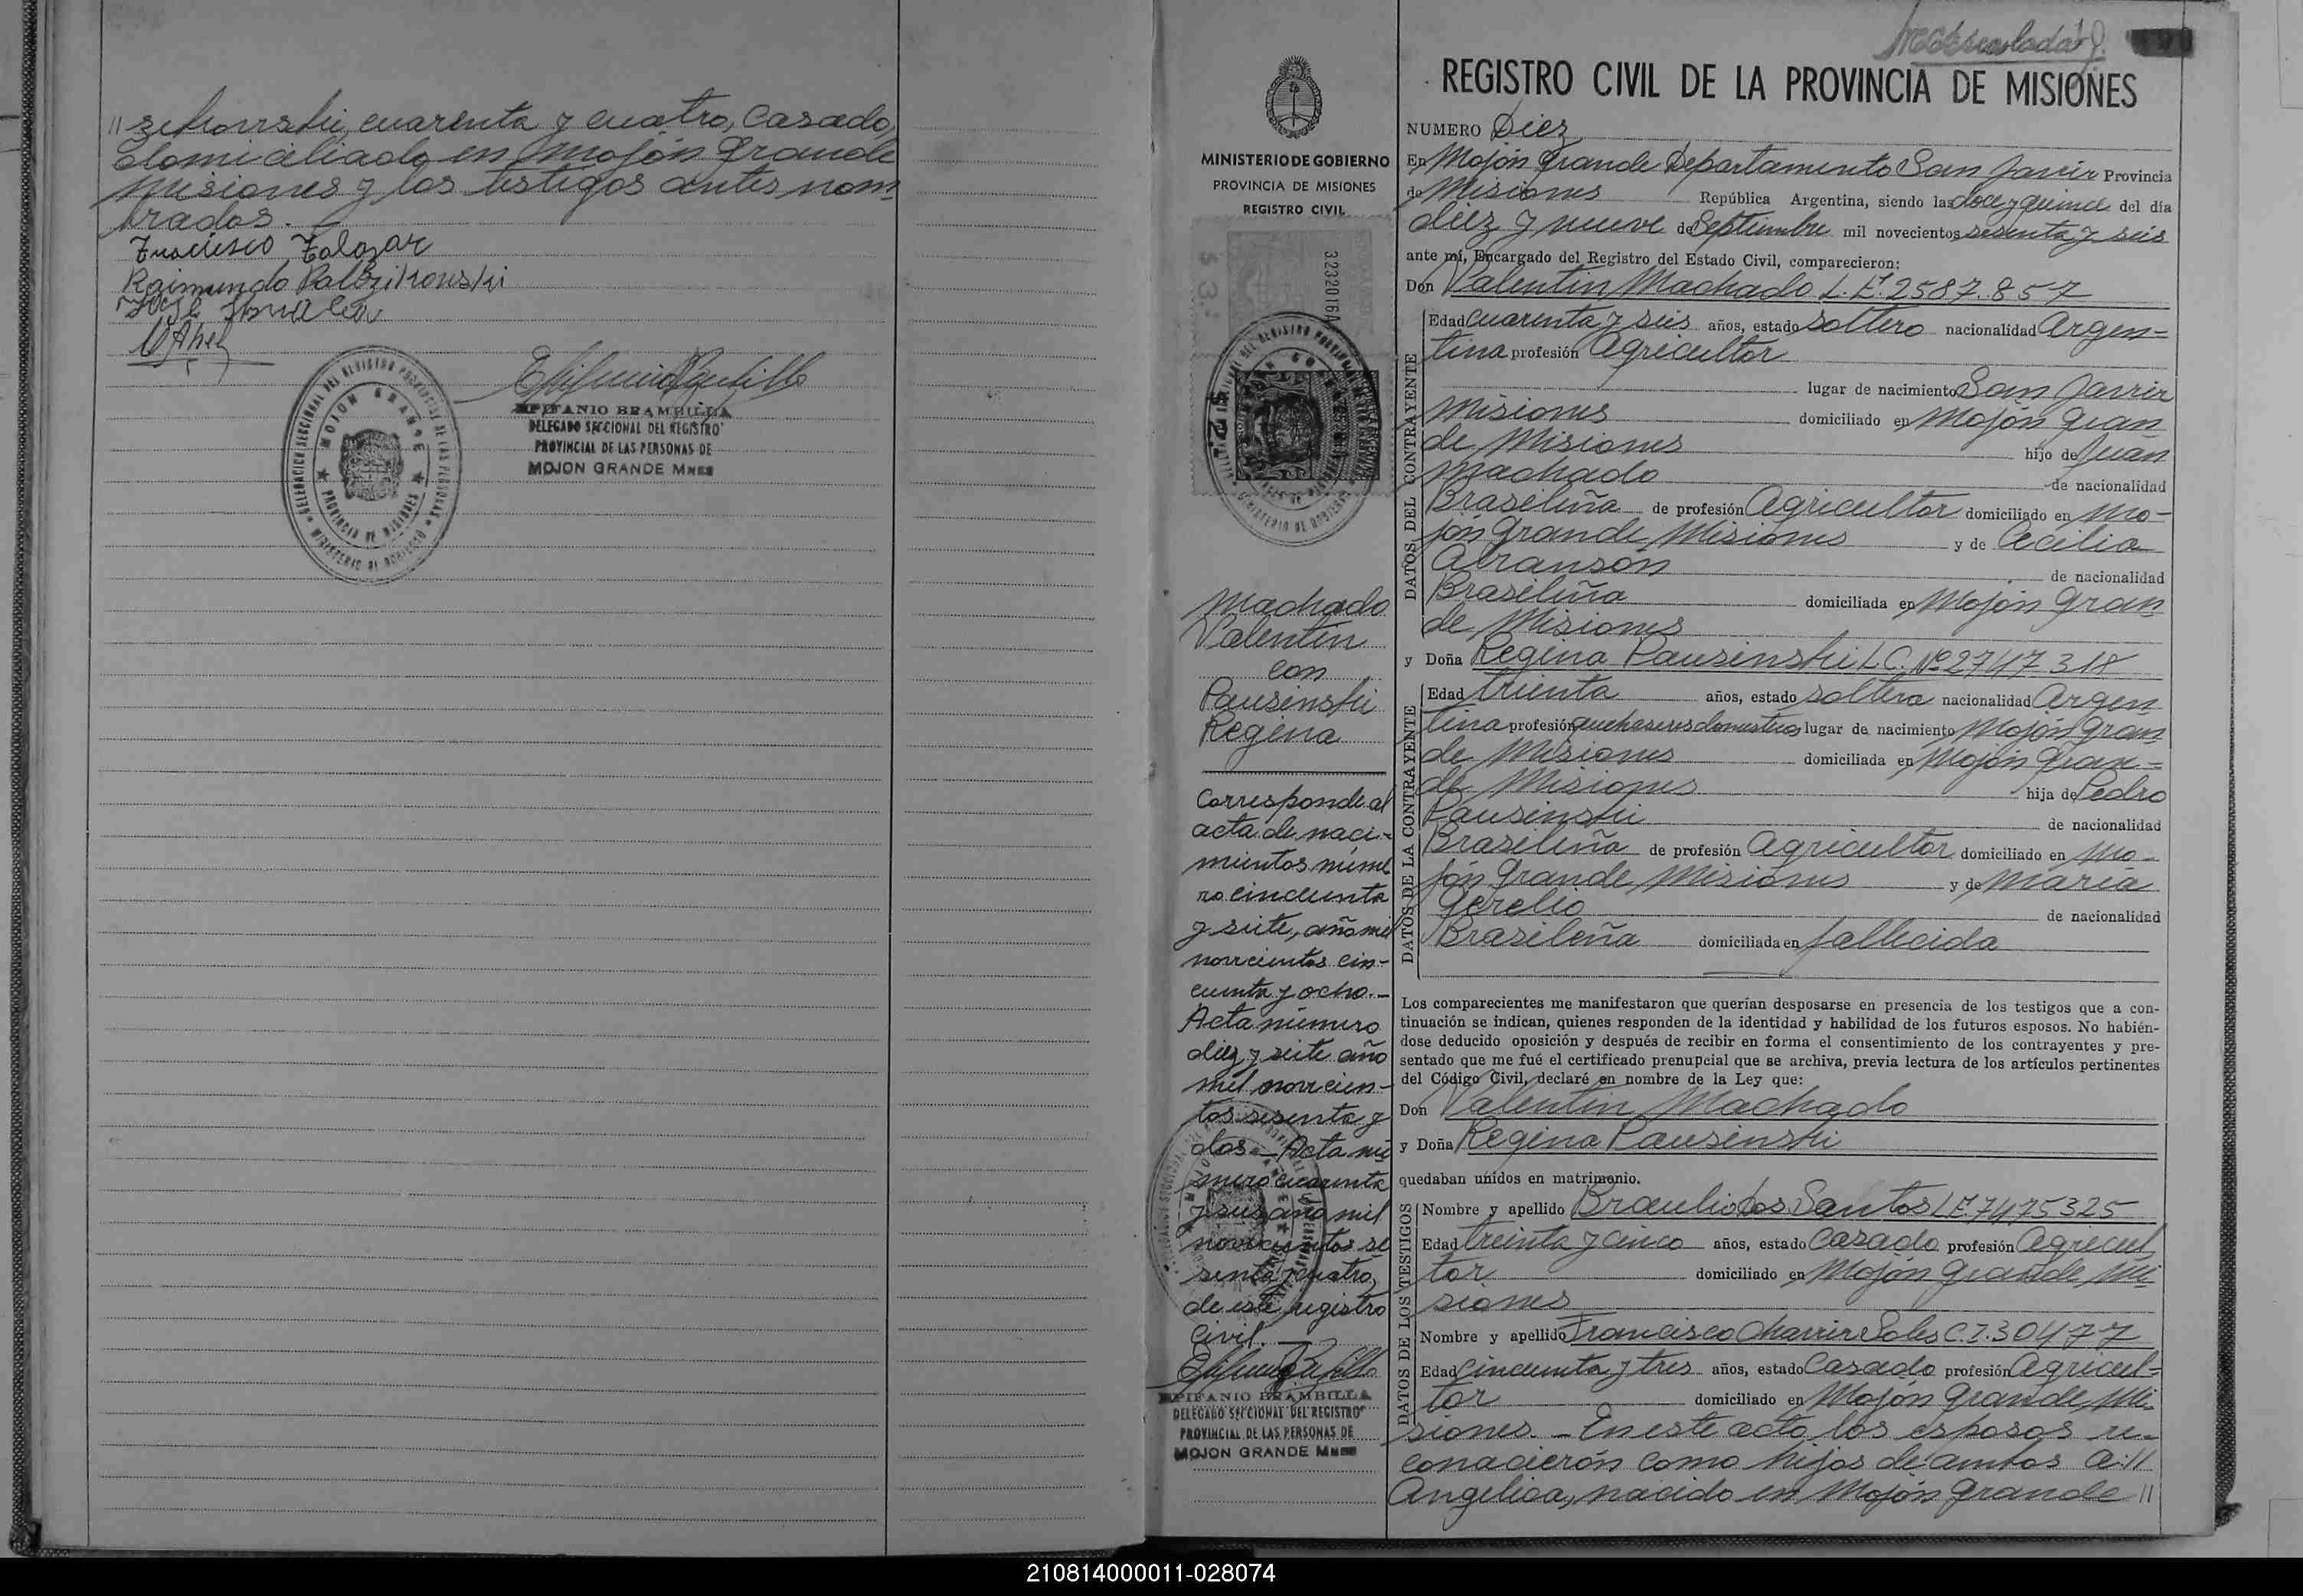 // zikowski, cuarenta y cuatro, casado,
domiciliado en Mojón Grande
Misiones y los testigos antes nom
brados.-
Francisco
Raimundo
EPIFANIO BRAMBILLA
DELEGADO SECCIONAL DEL REGISTRO
PROVINCIAL DE LAS PERSONAS DE
MOJON GRANDE Mnes
DELEGACION SECCIONAL DEL REGISTRO PROVINCIAL DE LAS PERSONAS
MOJON GRANDE
PROVINCIA DE MISIONES
MINISTERIO DE GOBIERNO
MINISTERIO DE GOBIERNO
PROVINCIA DE MISIONES
REGISTRO CIVIL
3232016A
Machado
Valentín
con
Pausinski
Regina
Corresponde al
acta de naci-
mientos núme
ro cincuenta
y siete, año mil
novecientos cin-
cuenta y ocho.-
Acta número
diez y siete año
mil novecien-
tos sesenta y
dos.- Acta nú
mero cuarenta
y seis año mil
novecientos se
senta y cuatro,
de este registro
Civil.
EPIFANIO BRAMBILLA
DELEGADO SECCIONAL DEL REGISTRO
PROVINCIAL DE LAS PERSONAS DE
MOJON GRANDE Mnes
REGISTRO CIVIL DE LA PROVINCIA DE MISIONES
NUMERO Diez
En Mojón Grande Departamento San Javier Provincia
de Misiones República Argentina, siendo las doce y quince del día
diez y nueve de Septiembre mil novecientos sesenta y seis
ante mí, Encargado del Registro del Estado Civil, comparecieron:
Don Valentín Machado L.E. 2587.857
DATOS DEL CONTRAYENTE
Edad cuarenta y seis años, estado soltero nacionalidad Argen-
tina profesión Agricultor
lugar de nacimiento San Javier
Misiones domiciliado en Mojón Gran
de Misiones hijo de Juan
Machado de nacionalidad
Brasileña de profesión Agricultor domiciliado en Mo-
jón Grande, Misiones y de Cecilia
de nacionalidad
Brasileña domiciliada en Mojón Gran
de, Misiones
y Doña Regina Pausinski L.C. Nº 2747318
DATOS DE LA CONTRAYENTE
Edad treinta años, estado soltera nacionalidad Argen
tina profesión quehaceres domesticos lugar de nacimiento Mojón Gran
de Misiones domiciliada en Mojón Gran-
de Misiones hija de Pedro
Pausinski de nacionalidad
Brasileña de profesión Agricultor domiciliado en Mo-
jón Grande, Misiones y de María
Gerelio de nacionalidad
Brasileña domiciliada en fallecida
Los comparecientes me manifestaron que querían desposarse en presencia de los testigos que a con-
tinuación se indican, quienes responden de la identidad y habilidad de los futuros esposos. No habién-
dose deducido oposición y después de recibir en forma el consentimiento de los contrayentes y pre-
sentado que me fué el certificado prenupcial que se archiva, previa lectura de los artículos pertinentes
del Código Civil, declaré en nombre de la Ley que:
Don Valentín Machado
y Doña Regina Pausinski
quedaban unidos en matrimonio.
DATOS DE LOS TESTIGOS
Nombre y apellido Braulio dos Santos L.E. 7475325
Edad treinta y cinco años, estado casado profesión Agricul
tor domiciliado en Mojón Grande Mi
siones
Nombre y apellido Francisco C.I. 30477
Edad cincuenta y tres años, estado casado profesión Agricul-
tor domiciliado en Mojón Grande, Mi-
siones.- En este acto los esposos re-
conocierón como hijos de ambos a: //
Angelica, nacido en Mojón Grande //
210814000011-028074